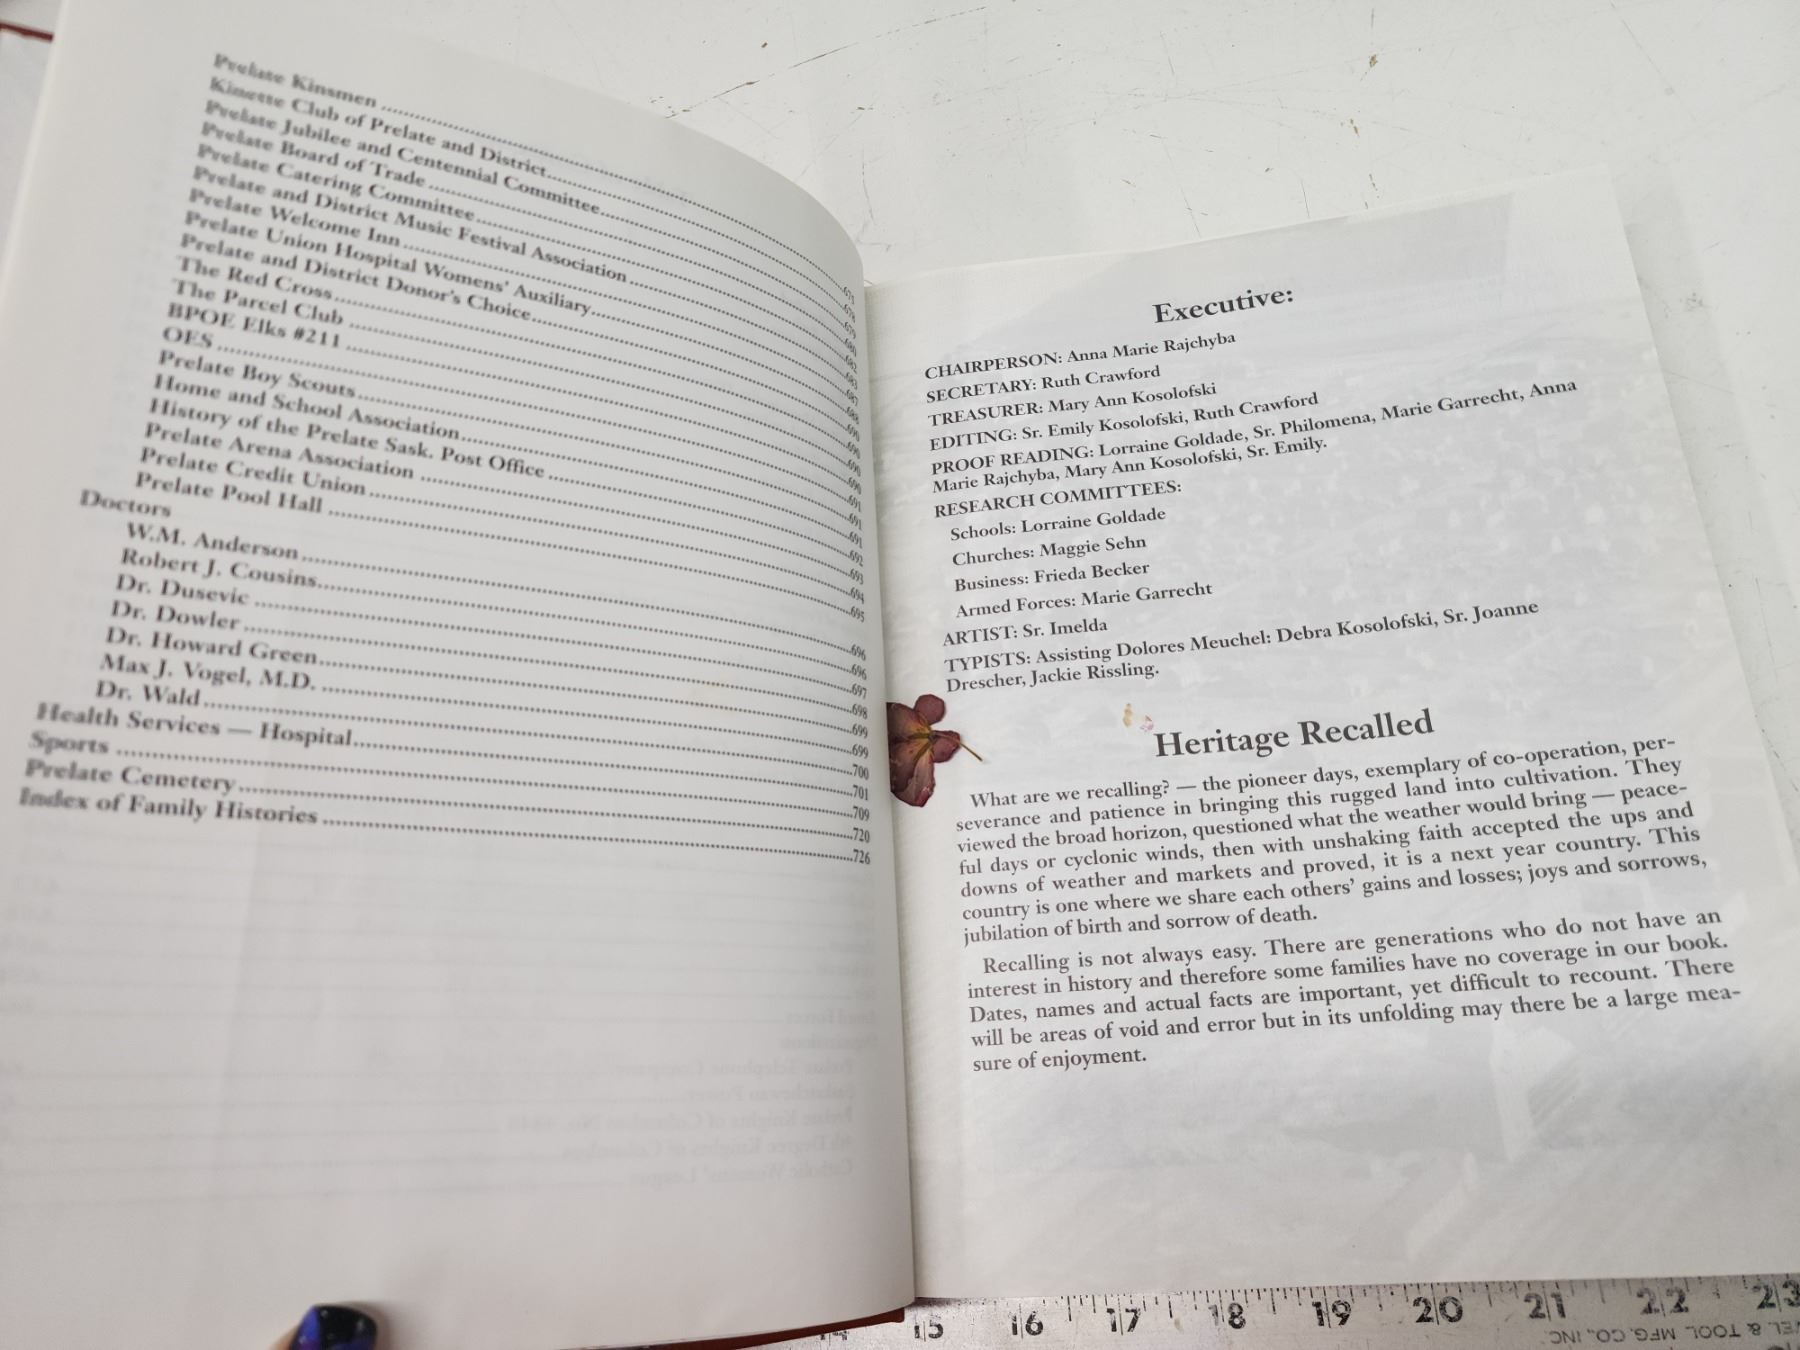 Prelate Kinsmen
Kinette Club of Prelate and District 678
Prelate Jubilee and Centennial Committee 679
Prelate Board of Trade 680
Prelate Catering Committee 682
Prelate and District Music Festival Association 683
Prelate Welcome Inn 687
Prelate Union Hospital Womens' Auxiliary 688
Prelate and District Donor's Choice 690
The Red Cross 690
The Parcel Club 690
BPOE Elks #211 690
OES 691
Prelate Boy Scouts 691
Home and School Association 691
History of the Prelate Sask. Post Office 692
Prelate Arena Association 693
Prelate Credit Union 694
Prelate Pool Hall 695
Doctors
W.M. Anderson 696
Robert J. Cousins 696
Dr. Dusevic 697
Dr. Dowler 698
Dr. Howard Green 699
Max J. Vogel, M.D. 699
Dr. Wald 700
Health Services — Hospital 701
Sports 709
Prelate Cemetery 720
Index of Family Histories 726
Executive:
CHAIRPERSON: Anna Marie Rajchyba
SECRETARY: Ruth Crawford
TREASURER: Mary Ann Kosolofski
EDITING: Sr. Emily Kosolofski, Ruth Crawford
PROOF READING: Lorraine Goldade, Sr. Philomena, Marie Garrecht, Anna
Marie Rajchyba, Mary Ann Kosolofski, Sr. Emily.
RESEARCH COMMITTEES:
Schools: Lorraine Goldade
Churches: Maggie Sehn
Business: Frieda Becker
Armed Forces: Marie Garrecht
ARTIST: Sr. Imelda
TYPISTS: Assisting Dolores Meuchel: Debra Kosolofski, Sr. Joanne
Drescher, Jackie Rissling.
Heritage Recalled
What are we recalling? — the pioneer days, exemplary of co-operation, per-
severance and patience in bringing this rugged land into cultivation. They
viewed the broad horizon, questioned what the weather would bring — peace-
ful days or cyclonic winds, then with unshaking faith accepted the ups and
downs of weather and markets and proved, it is a next year country. This
country is one where we share each others' gains and losses; joys and sorrows,
jubilation of birth and sorrow of death.
Recalling is not always easy. There are generations who do not have an
interest in history and therefore some families have no coverage in our book.
Dates, names and actual facts are important, yet difficult to recount. There
will be areas of void and error but in its unfolding may there be a large mea-
sure of enjoyment.
14 15 16 17 18 19 20 21 22 23
& TOOL MFG. CO., INC.